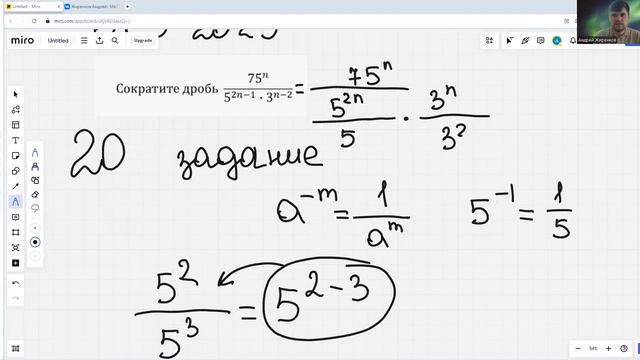 Untitled - Miro
Жиренков Андрей: МАТ
miro.com/app/board/uXjVKOSasIQ=/
miro Untitled Upgrade
Андрей Жиренков
Сократите дробь 75ⁿ / (5²ⁿ⁻¹ · 3ⁿ⁻²) = 75ⁿ / (5²ⁿ/5 · 3ⁿ/3²)
20 задание
a⁻ᵐ = 1/aᵐ 5⁻¹ = 1/5
5²/5³ = 5²⁻³
54%